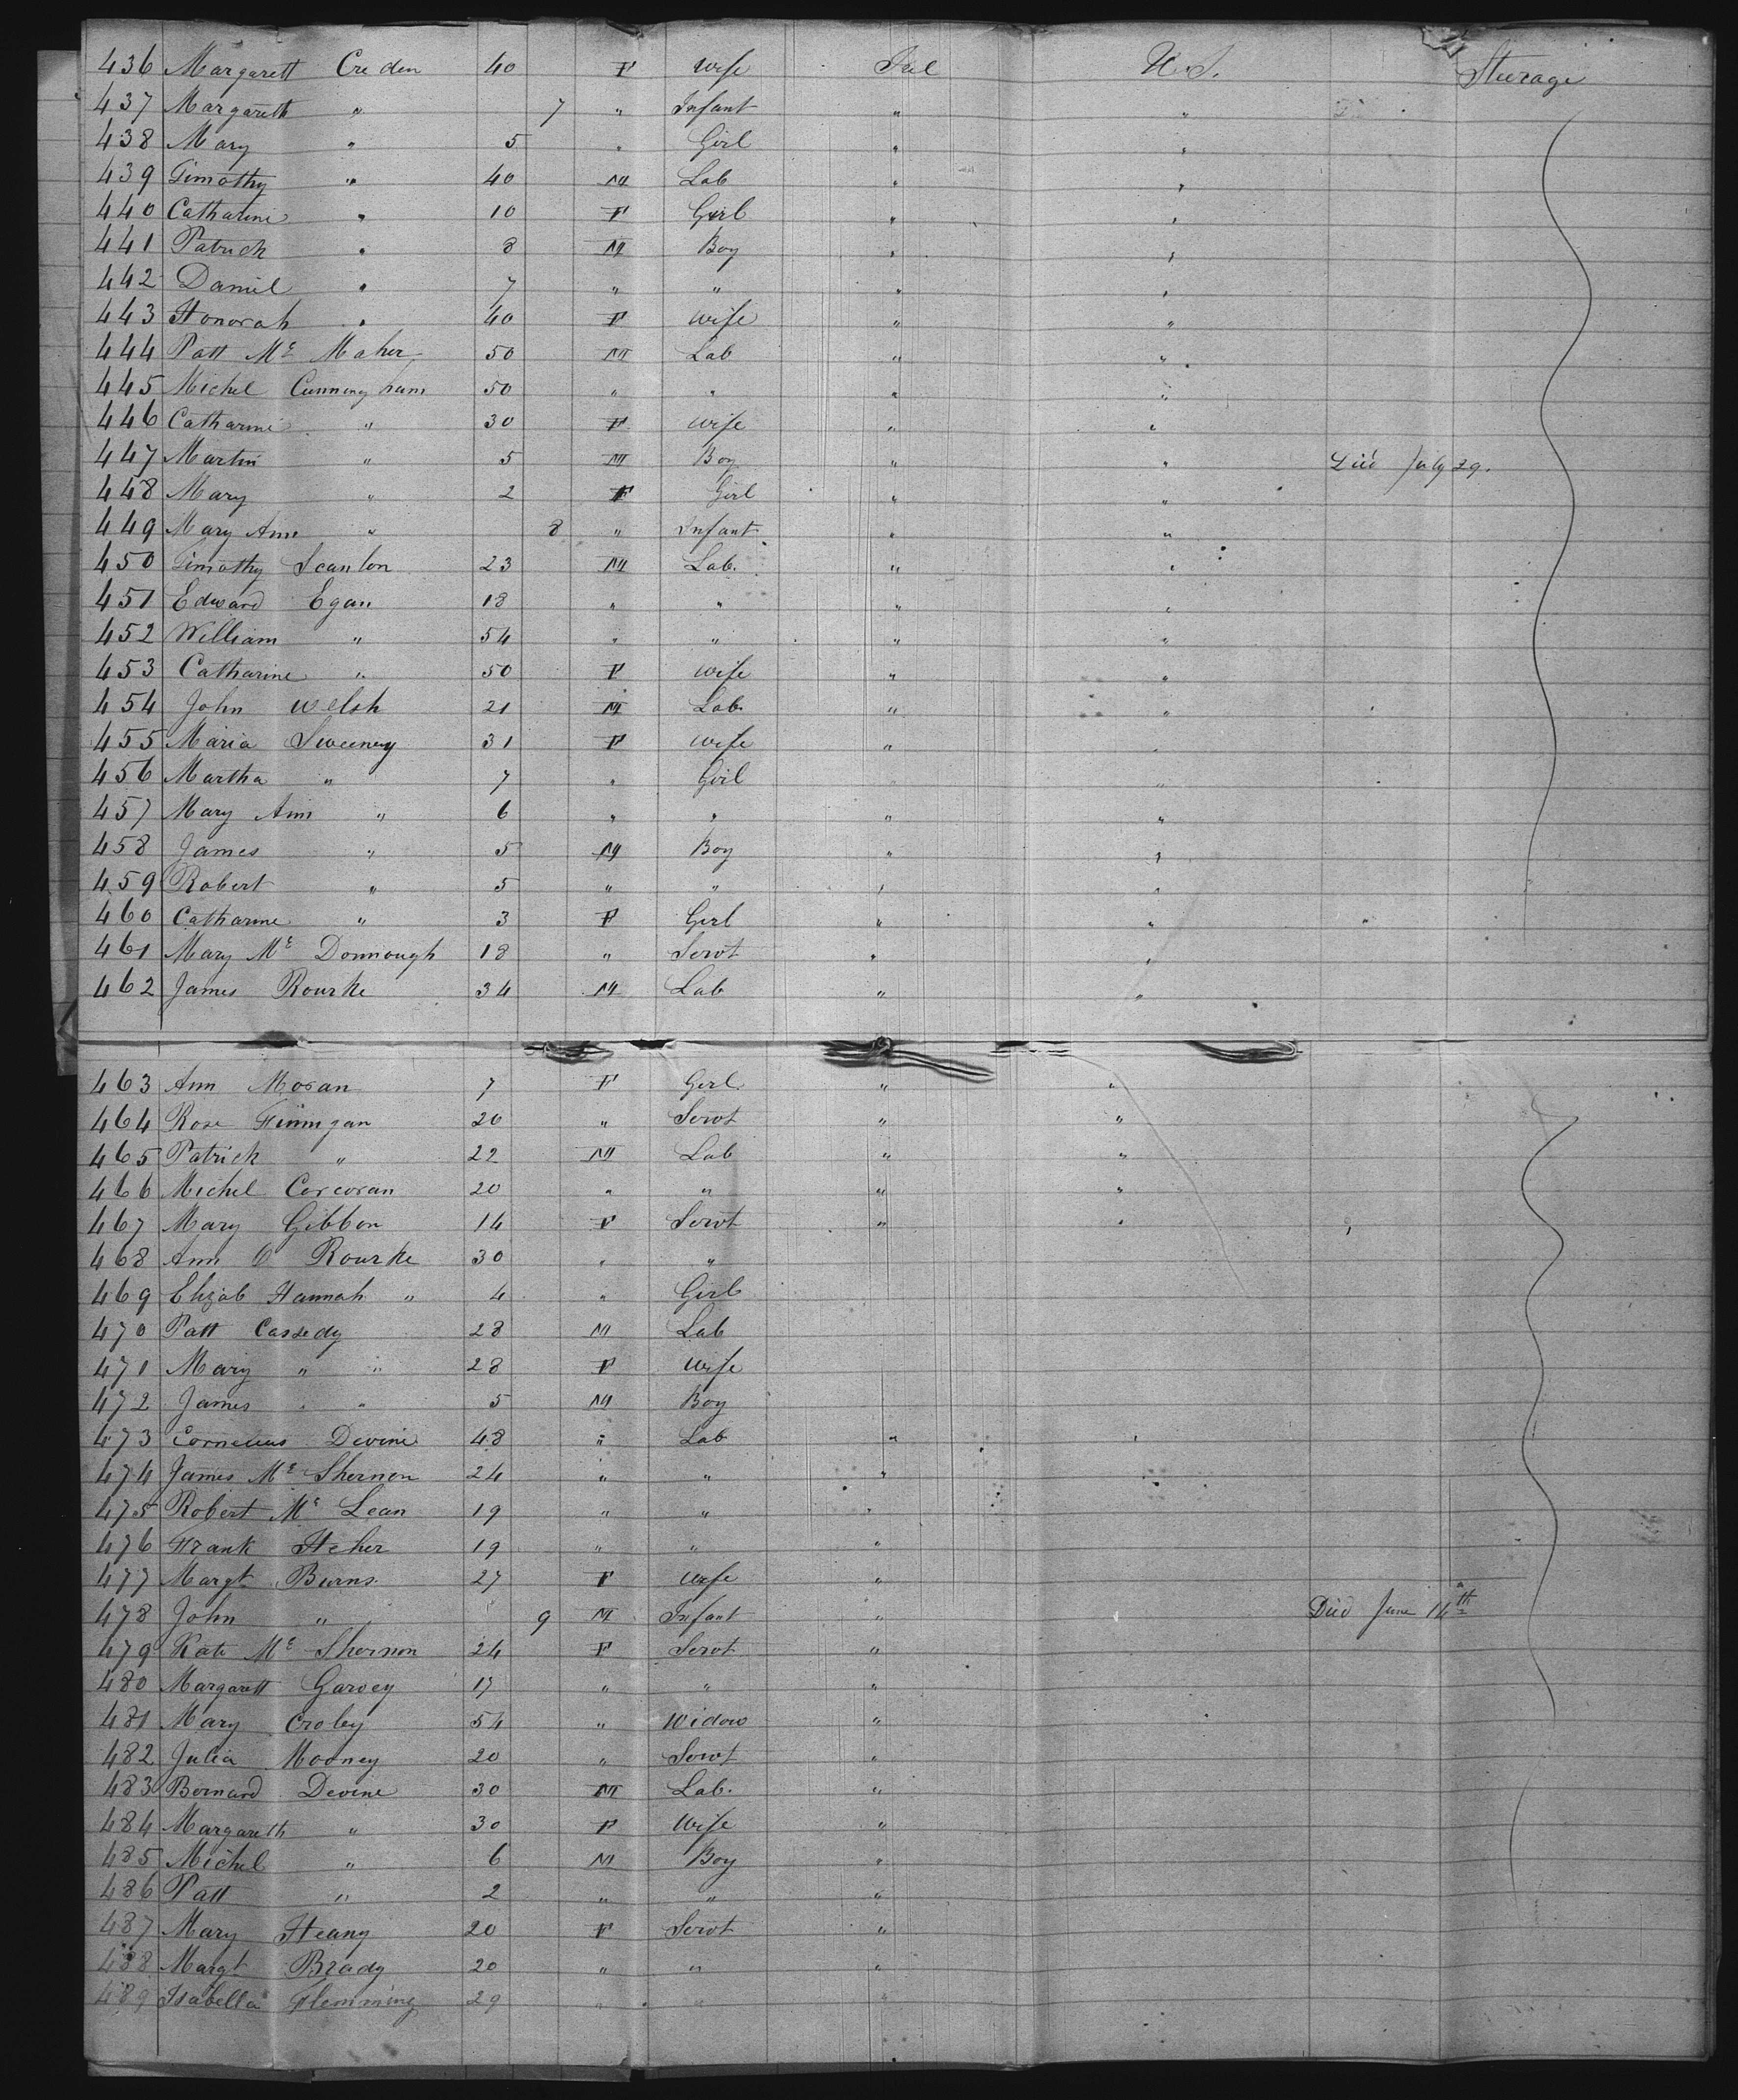 436 Margarett Creden 40 F Wife Irel U.S. Steerage
437 Margareth " 7 " Infant " "
438 Mary " 5 " Girl " "
439 Timothy " 40 M Lab " "
440 Catharine " 10 F Girl " "
441 Patrick " 8 M Boy " "
442 Daniel " 7 " " " "
443 Honorah " 40 F Wife " "
444 Patt Mc Maher 50 M Lab " "
445 Michel Cunningham 50 " " " "
446 Catharine " 30 F Wife " "
447 Martin " 5 M Boy " " Died July 29.
448 Mary " 2 F Girl " "
449 Mary Ann " 8 " Infant " "
450 Timothy Scanlon 23 M Lab. " "
451 Edward Egan 18 " " " "
452 William " 54 " " " "
453 Catharine " 50 F Wife " "
454 John Welsh 21 M Lab. " "
455 Maria Sweeney 31 F Wife " "
456 Martha " 7 " Girl "
457 Mary Ann " 6 " " " "
458 James " 5 M Boy " "
459 Robert " 5 " " " "
460 Catharine " 3 F Girl " "
461 Mary Mc Donnough 18 " Servt " "
462 James Rourke 34 M Lab " "
463 Ann Moran 7 F Girl " "
464 Rose Finnigan 20 " Servt " "
465 Patrick " 22 M Lab " "
466 Michel Corcoran 20 " " " "
467 Mary Gibbon 14 F Servt " "
468 Ann O Rourke 30 " "
469 Elizab Hannah " 4 " Girl
470 Patt Cassedy 28 M Lab
471 Mary " " 28 F Wife
472 James " " 5 M Boy
473 Cornelius Devine 48 " Lab " "
474 James Mc Shernon 24 " " "
475 Robert Mc Lean 19 " " "
476 Frank Heher 19 " " "
477 Margt Burns 27 F Wife "
478 John " 9 M Infant " Died June 14th
479 Kate Mc Shernon 24 F Servt "
480 Margarett Garvey 17 " " "
481 Mary Croley 54 " Widow "
482 Julia Mooney 20 " Servt "
483 Bernard Devine 30 M Lab. "
484 Margareth " 30 F Wife "
485 Michel " 6 M Boy "
486 Patt " 2 " " "
487 Mary Heany 20 F Servt "
488 Margt Brady 20 " " "
489 Isabella Flemming 29 " " "